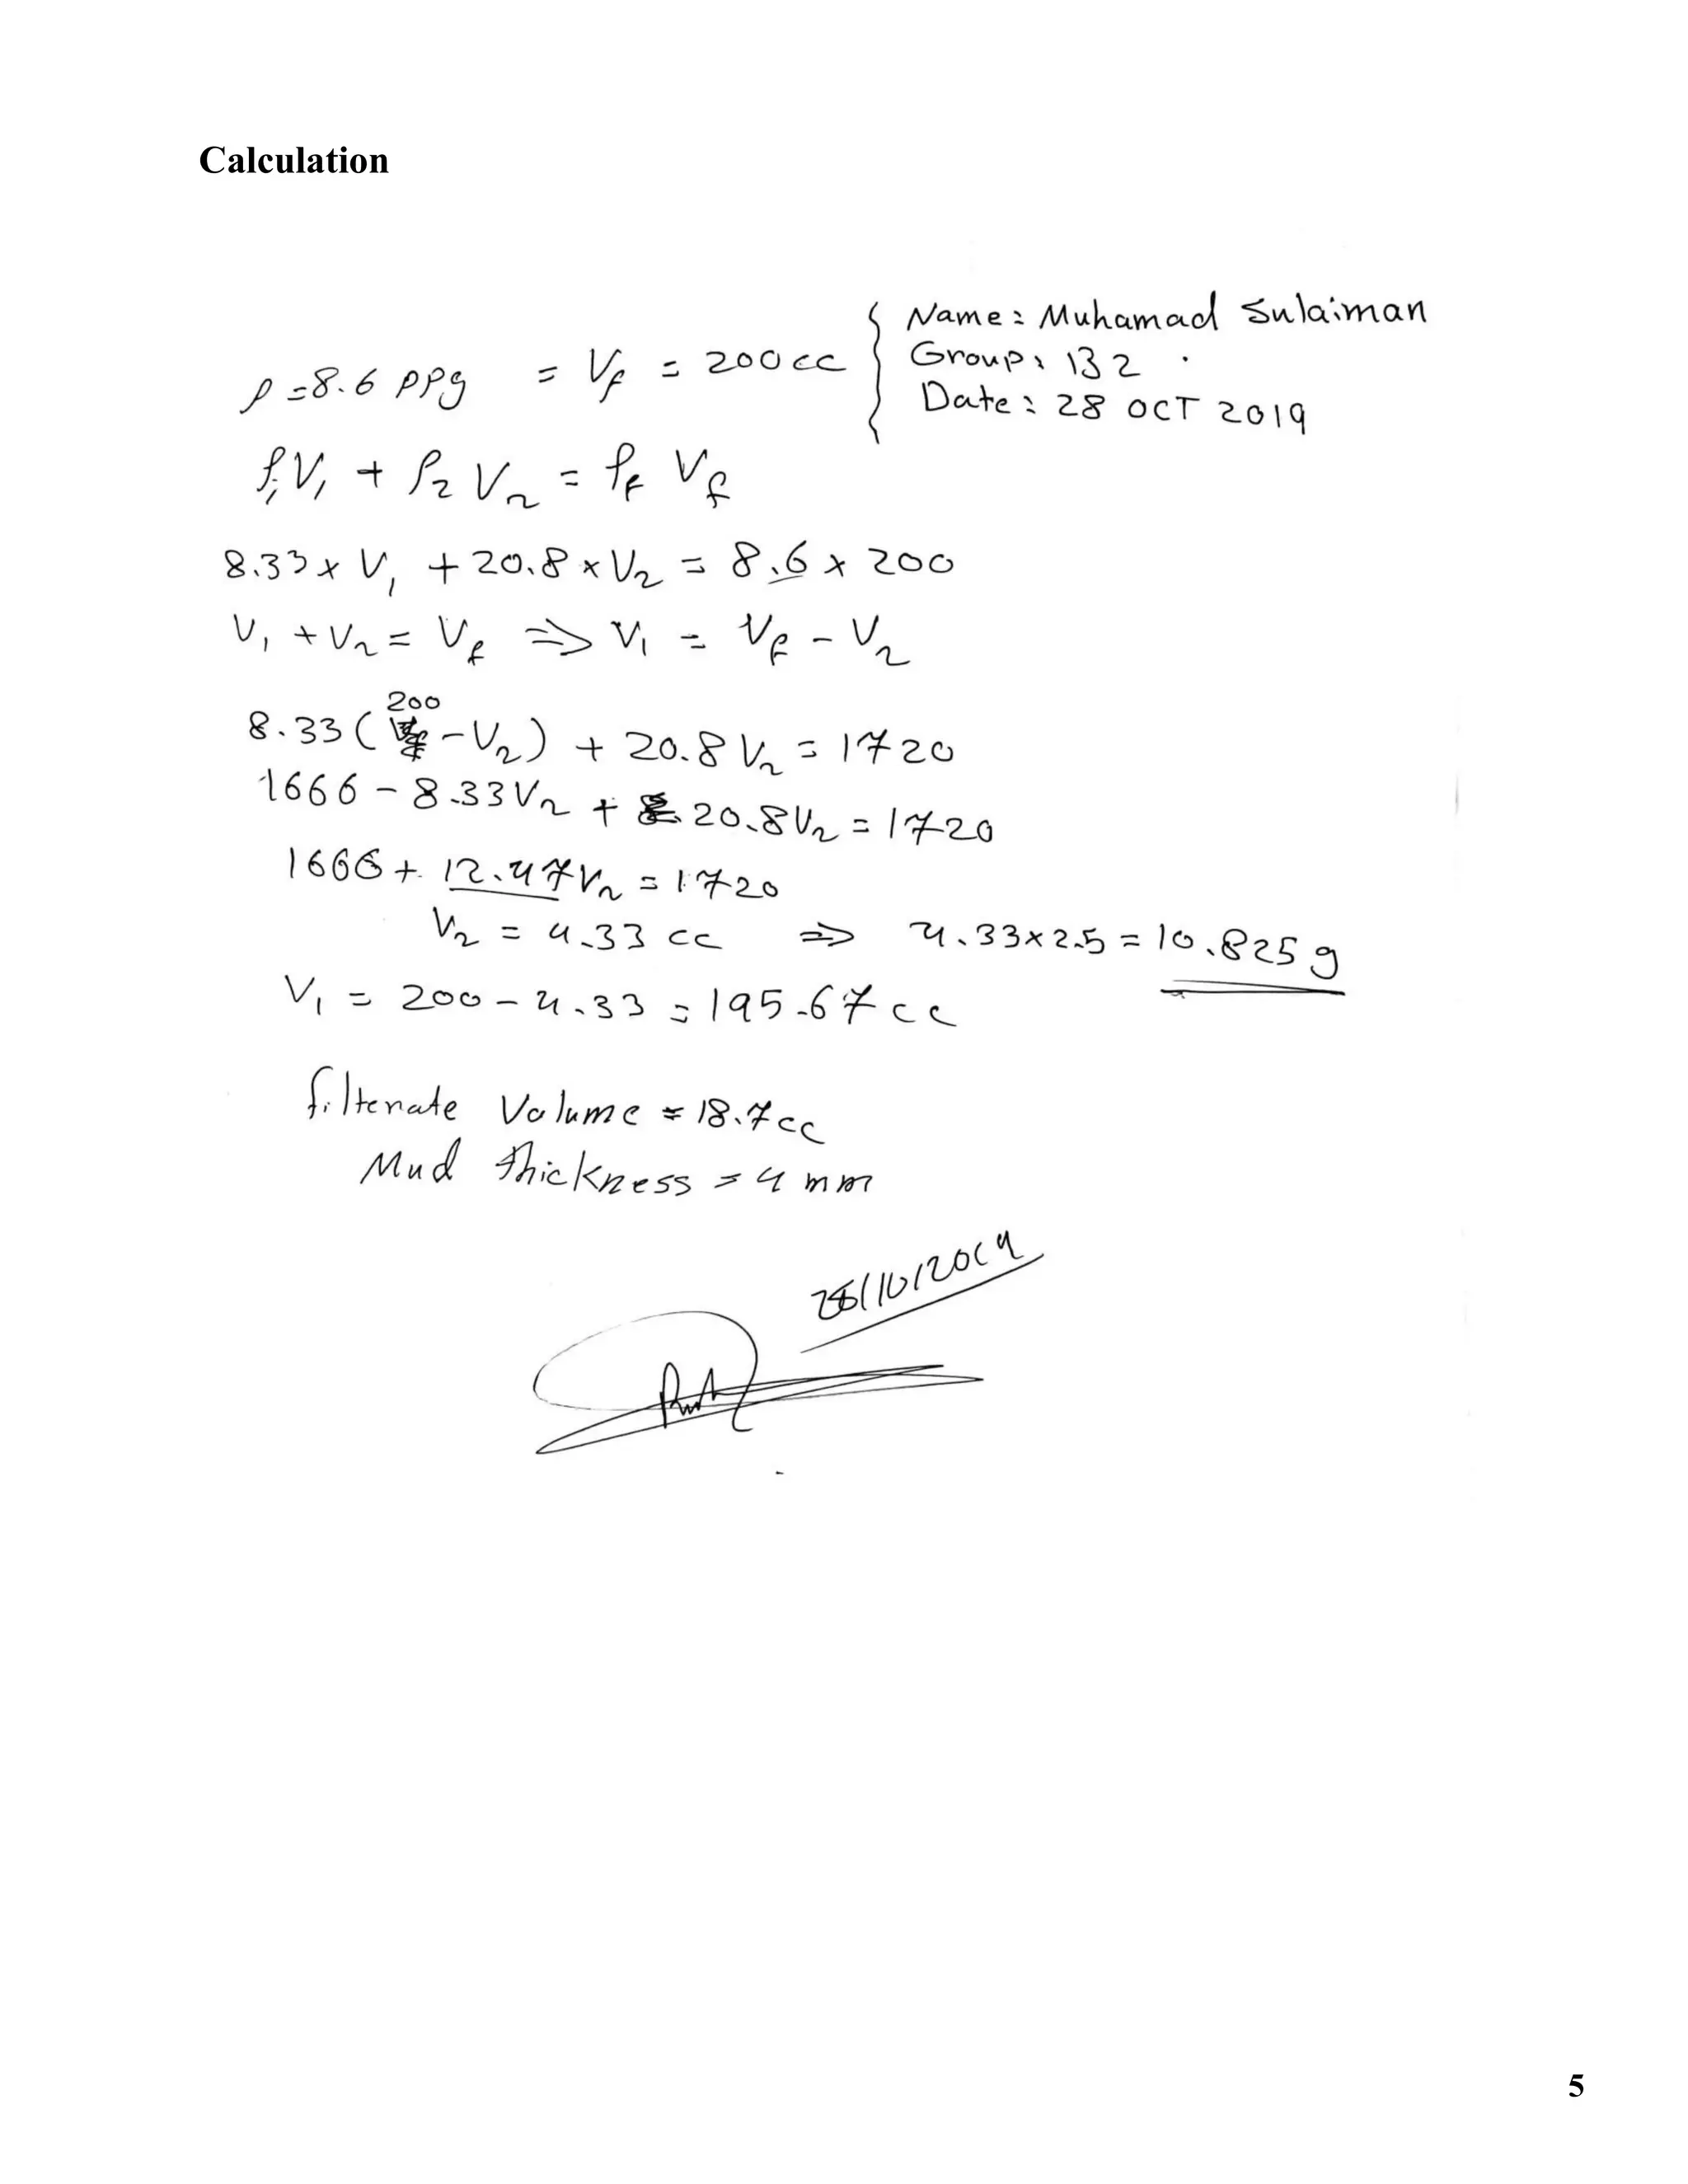 Calculation
ρ = 8.6 ppg = Vf = 200 cc
Name: Muhamad Sulaiman
Group: 132
Date: 28 OCT 2019
ρ1V1 + ρ2 V2 = ρf Vf
8.33 x V1 + 20.8 x V2 = 8.6 x 200
V1 + V2 = Vf ⇒ V1 = Vf - V2
200
8.33 ( - V2) + 20.8 V2 = 1720
1666 - 8.33 V2 + 20.8 V2 = 1720
1666 + 12.47 V2 = 1720
V2 = 4.33 cc ⇒ 4.33 x 2.5 = 10.825 g
V1 = 200 - 4.33 = 195.67 cc
filterate Volume = 18.7 cc
Mud thickness = 4 mm
28/10/2019
5